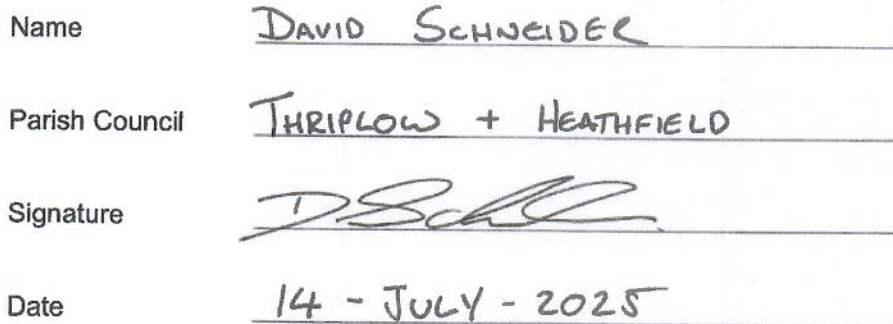 Name DAVID SCHNEIDER
Parish Council THRIPLOW + HEATHFIELD
Signature
Date 14 - JULY - 2025